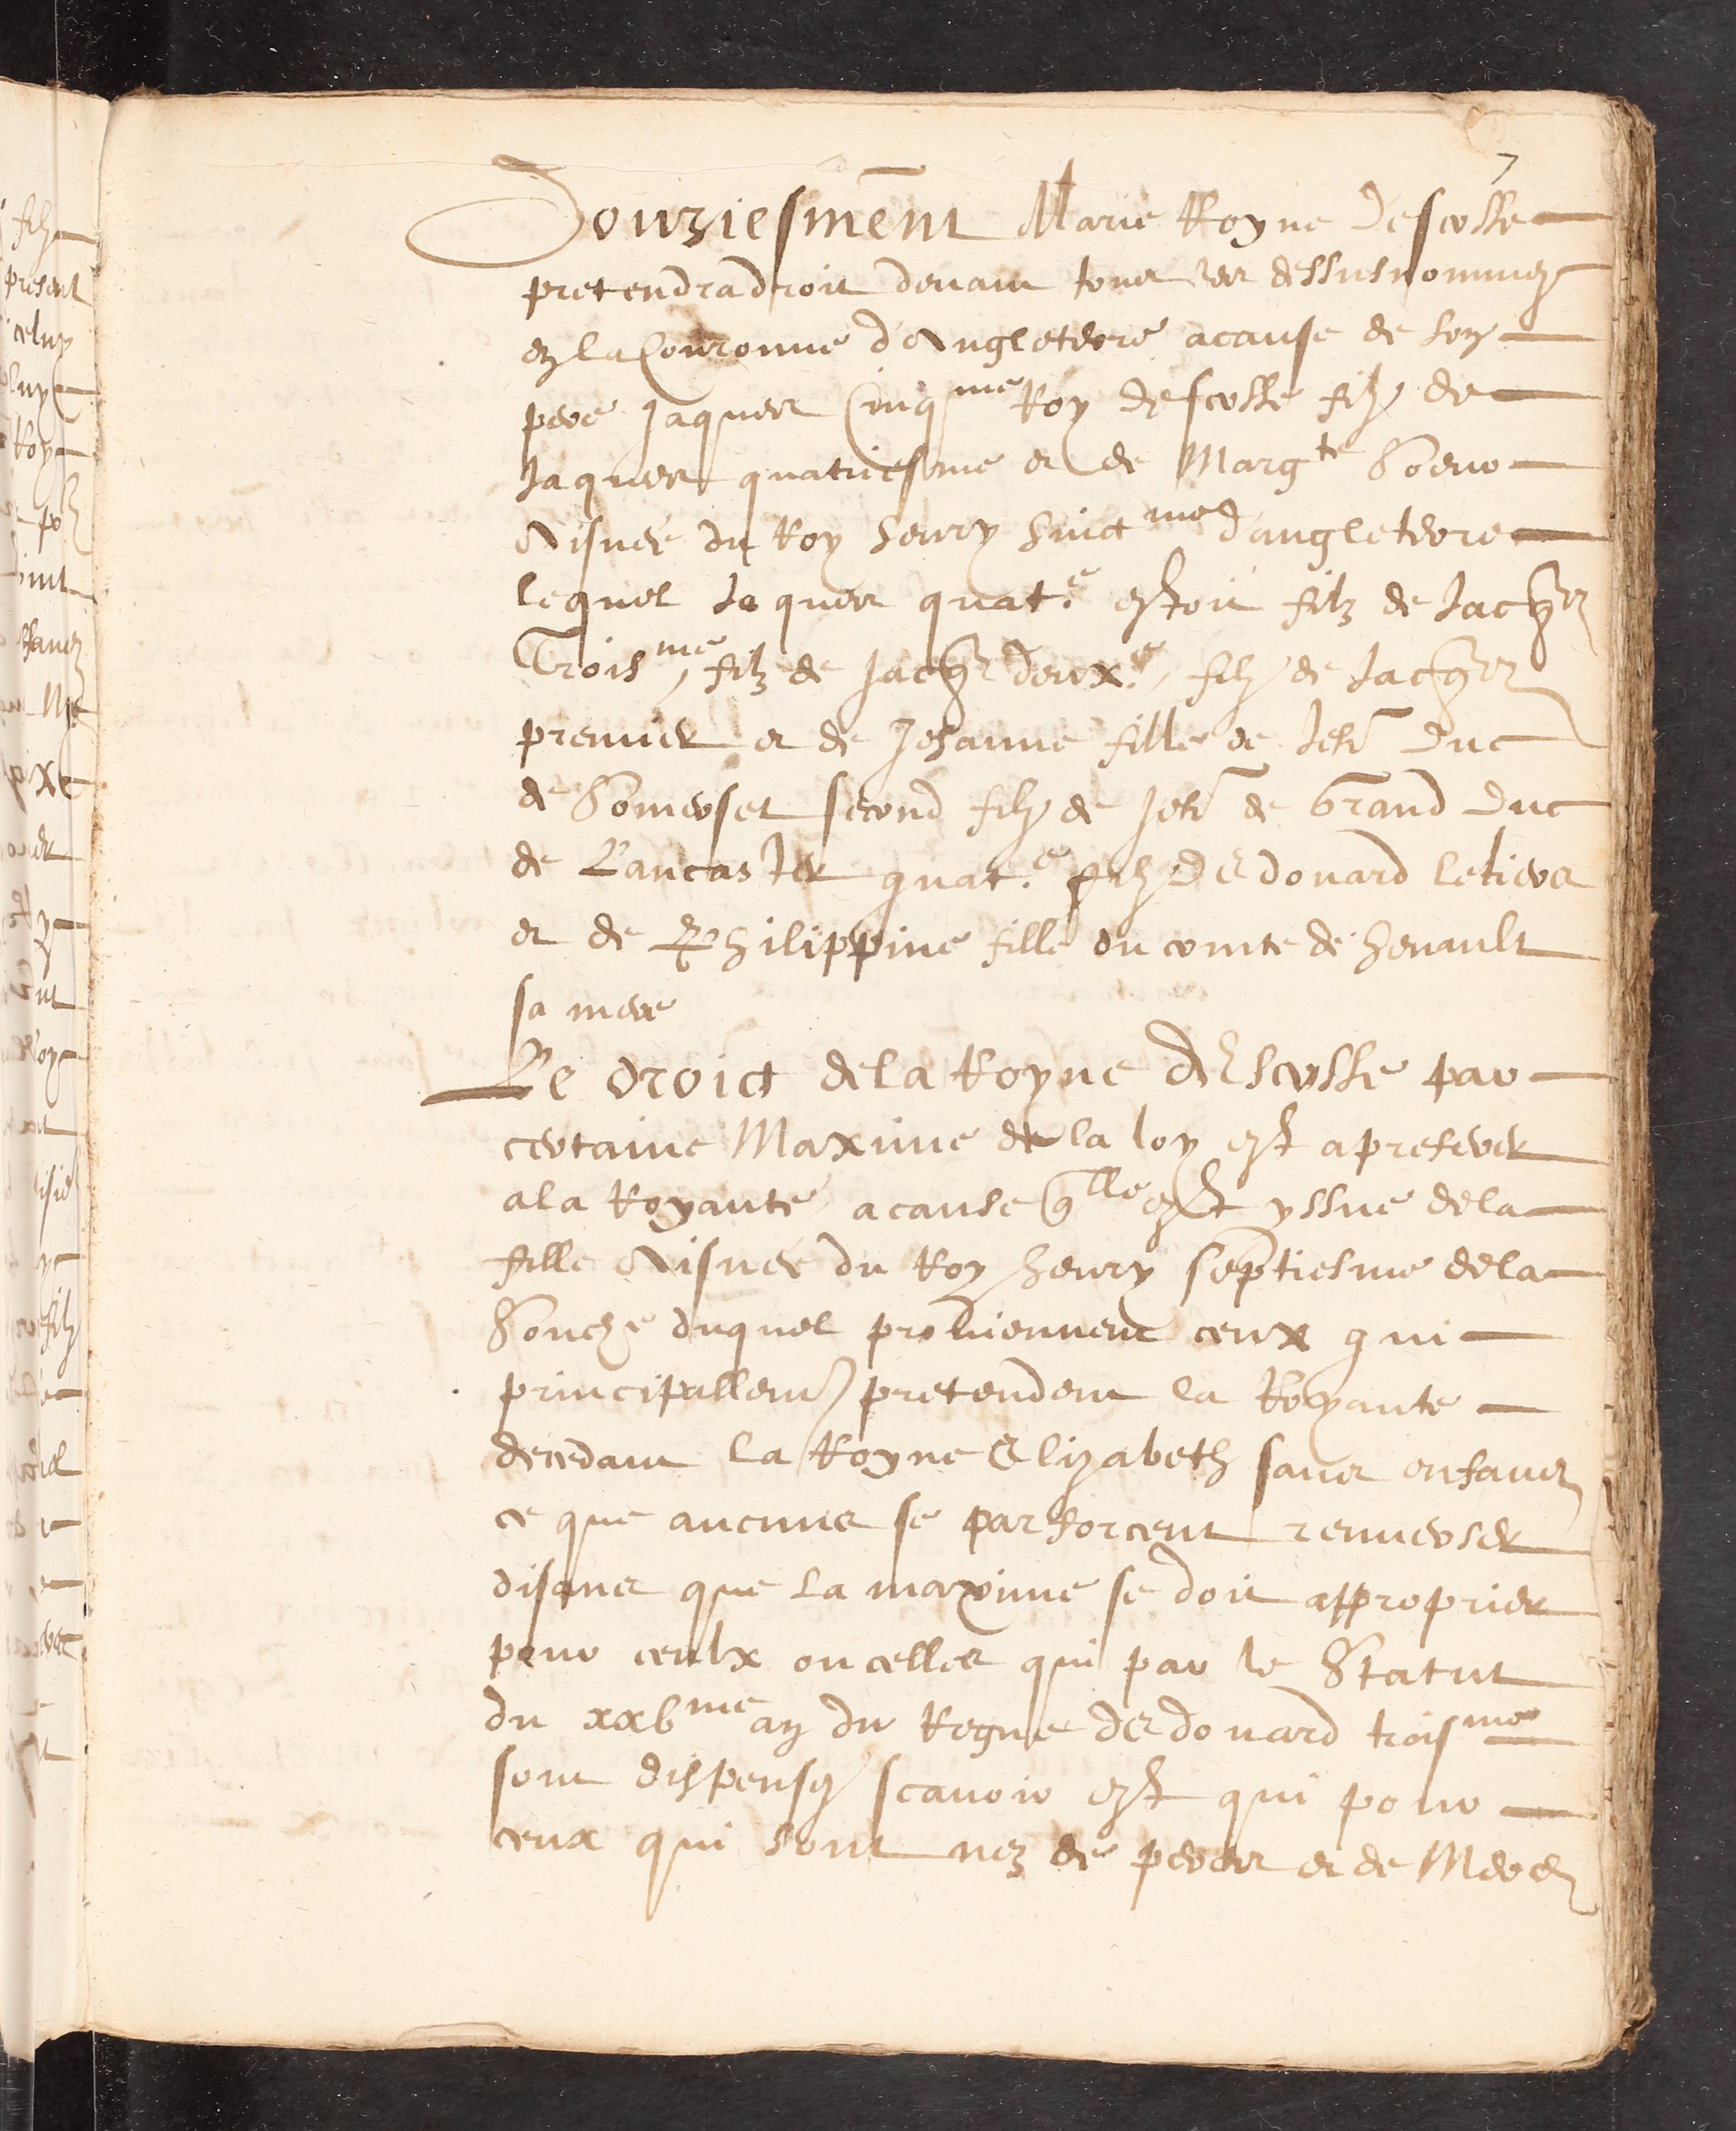 7
Douziesmēnt Marie Royne Descosse
pretendra droit devant tous les dessusnommez
en la Couronne d'Angleterre acause de son
pere Jaques Cinqme Roy descosse filz de
Jaques quatriesme et de Margte Soeur
Aisnée du Roy henry huictme d'angleterre
lequel Jaques quat.e estoit filz de Jacqs
Troisme, filz de Jacqs deux.e, filz de Jacqs
premier et de Jehanne fille de Jeh Duc
de Somerset second filz de Jeh de Grand Duc
de Lancaster quat.e filz D'Edouard le tiers
et de Philippine fille du comte de henault
sa mere
Le droict de la Royne d'Escosse par
certaine Maxime de la loy est a preferer
a la Royauté acause qlle est yssue de la
fille Aisnée du Roy henry septiesme de la
Souche duquel proviennent ceux qui
principallemt pretendent la Royauté
decedant la Royne Elizabeth sans enfans
ce que aucuns se parforcent renverser
disans que la maxime se doit approprier
pour ceulx ou celles qui par le Statut
du xxvme an du Regne d'Edouard troisme
sont dispensez scavoir est qui pour
ceux qui sont nez de peres et de Meres
filz
present
celuy
luy
Roy